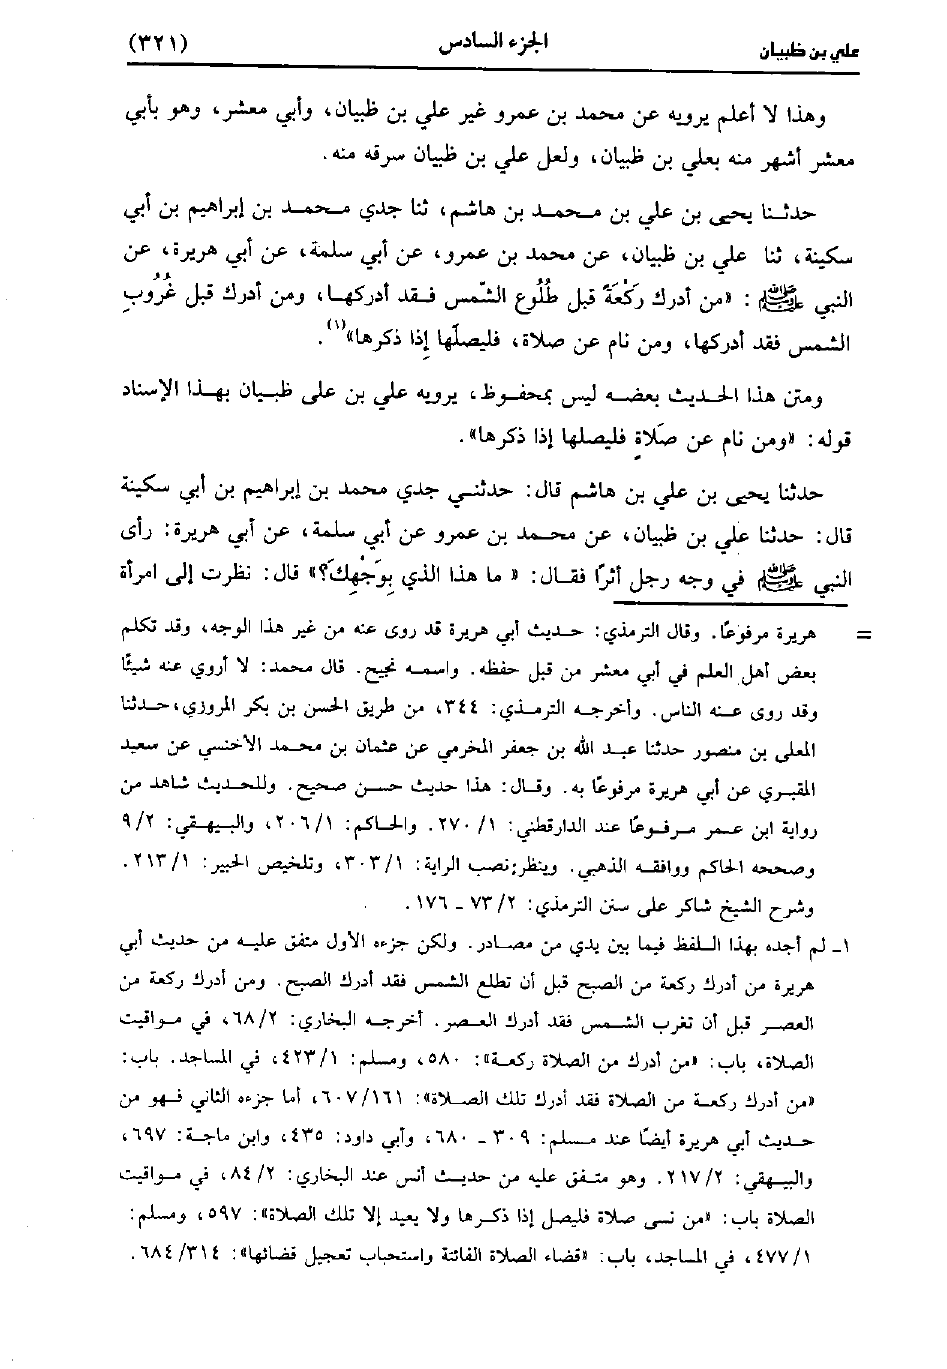 علي بن ظبيان الجزء السادس (٣٢١)
وهذا لا أعلم يرويه عن محمد بن عمرو غير علي بن ظبيان، وأبي معشر، وهو بأبي
معشر أشهر منه بعلي بن ظبيان، ولعل علي بن ظبيان سرقه منه.
حدثنا يحيى بن علي بن محمد بن هاشم، ثنا جدي محمد بن إبراهيم بن أبي
سكينة، ثنا علي بن ظبيان، عن محمد بن عمرو، عن أبي سلمة، عن أبي هريرة، عن
النبي ﷺ: «من أدرك ركْعَةً قبل طُلُوعِ الشّمس فقد أدركها، ومن أدرك قبل غُروبِ
الشمس فقد أدركها، ومن نام عن صلاة، فليصلّها إِذا ذكرها»(١).
ومتن هذا الحديث بعضه ليس بمحفوظ، يرويه علي بن على ظبيان بهذا الإسناد
قوله: «ومن نام عن صَلاةٍ فليصلها إذا ذكرها».
حدثنا يحيى بن علي بن هاشم قال: حدثني جدي محمد بن إبراهيم بن أبي سكينة
قال: حدثنا علي بن ظبيان، عن محمد بن عمرو عن أبي سلمة، عن أبي هريرة: رأى
النبي ﷺ في وجه رجل أثرًا فقال: « ما هذا الذي بِوَجْهِكَ؟» قال: نظرت إلى امرأة
= هريرة مرفوعًا. وقال الترمذي: حديث أبي هريرة قد روى عنه من غير هذا الوجه، وقد تكلم
بعض أهل العلم في أبي معشر من قبل حفظه. واسمه نجيح. قال محمد: لا أروي عنه شيئًا
وقد روى عنه الناس. وأخرجه الترمذي: ٣٤٤، من طريق الحسن بن بكر المروزي، حدثنا
المعلى بن منصور حدثنا عبد الله بن جعفر المخرمي عن عثمان بن محمد الأخنسي عن سعيد
المقبري عن أبي هريرة مرفوعًا به. وقال: هذا حديث حسن صحيح. وللحديث شاهد من
رواية ابن عمر مرفوعًا عند الدارقطني: ٢٧٠/١. والحاكم: ٢٠٦/١، والبيهقي: ٩/٢
وصححه الحاكم ووافقه الذهبي. وينظر: نصب الراية: ٣٠٣/١، وتلخيص الحبير: ٢١٣/١.
وشرح الشيخ شاكر على سنن الترمذي: ٧٣/٢ ـ ١٧٦.
١ـ لم أجده بهذا اللفظ فيما بين يدي من مصادر. ولكن جزءه الأول متفق عليه من حديث أبي
هريرة من أدرك ركعة من الصبح قبل أن تطلع الشمس فقد أدرك الصبح. ومن أدرك ركعة من
العصر قبل أن تغرب الشمس فقد أدرك العصر. أخرجه البخاري: ٦٨/٢، في مواقيت
الصلاة، باب: «من أدرك من الصلاة ركعة»: ٥٨٠، ومسلم: ٤٢٣/١، في المساجد. باب:
«من أدرك ركعة من الصلاة فقد أدرك تلك الصلاة»: ٦٠٧/١٦١، أما جزءه الثاني فهو من
حديث أبي هريرة أيضًا عند مسلم: ٣٠٩ ـ ٦٨٠، وأبي داود: ٤٣٥، وابن ماجة: ٦٩٧،
والبيهقي: ٢١٧/٢. وهو متفق عليه من حديث أنس عند البخاري: ٨٤/٢، في مواقيت
الصلاة باب: «من نسى صلاة فليصل إذا ذكرها ولا يعيد إلا تلك الصلاة»: ٥٩٧، ومسلم:
٤٧٧/١، في المساجد، باب: «قضاء الصلاة الفائتة واستحباب تعجيل قضائها»: ٦٨٤/٣١٤.